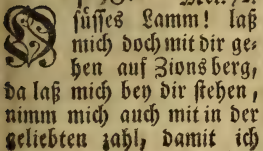 O
süsses Lamm! laß
mich doch mit dir ge-
hen auf Zions berg,
da laß mich bey dir stehen,
nimm mich auch mit in der
geliebten zahl, damit ich